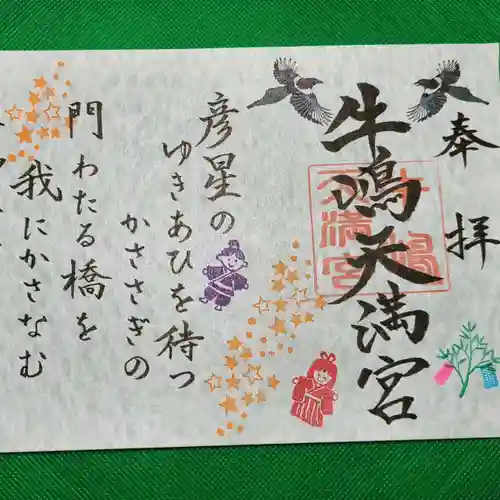 奉拝
牛嶋天満宮
彦星の
ゆきあひを待つ
かささぎの
門わたる橋を
我にかさなむ